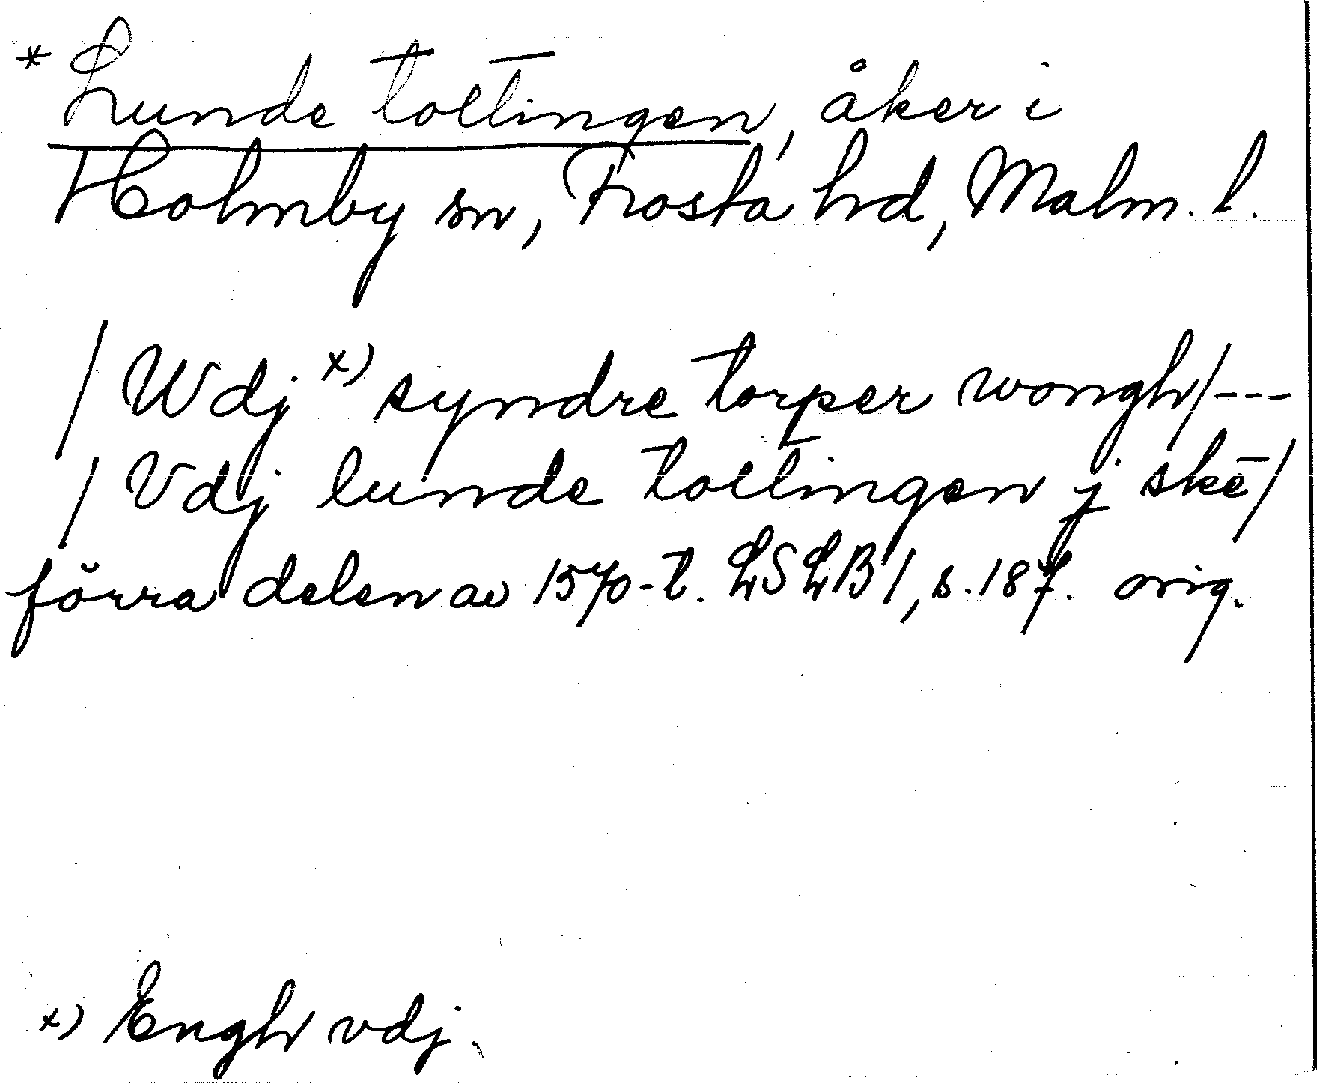 * Lunde toltingen, åker i
Holmby sn, Frosta hd, Malm. l.
/ Wdj x) syndre torper wongh / ---
/ Vdj lunde toltingen j skē /
förra delen av 1570-t. LSLB 1, s. 187. orig.
x) Engh vdj